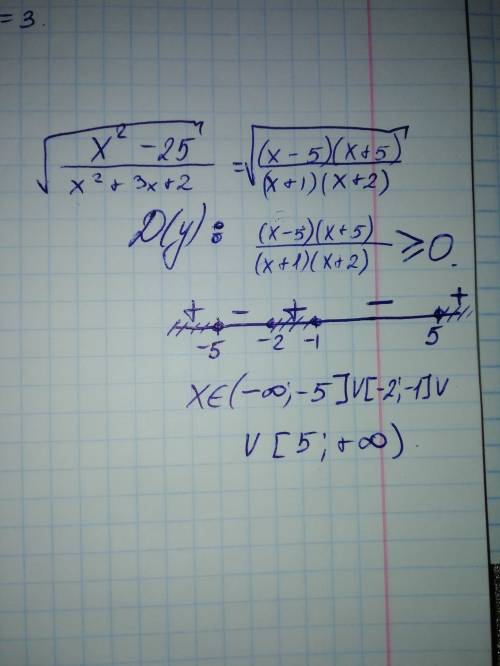 = 3.
√((x² - 25)/(x² + 3x + 2)) = √((x - 5)(x + 5)/((x + 1)(x + 2)))
D(y): (x - 5)(x + 5)/((x + 1)(x + 2)) ≥ 0.
+ - + - +
-5 -2 -1 5
X ∈ (-∞; -5] ∪ [-2; -1] ∪
∪ [5; +∞).